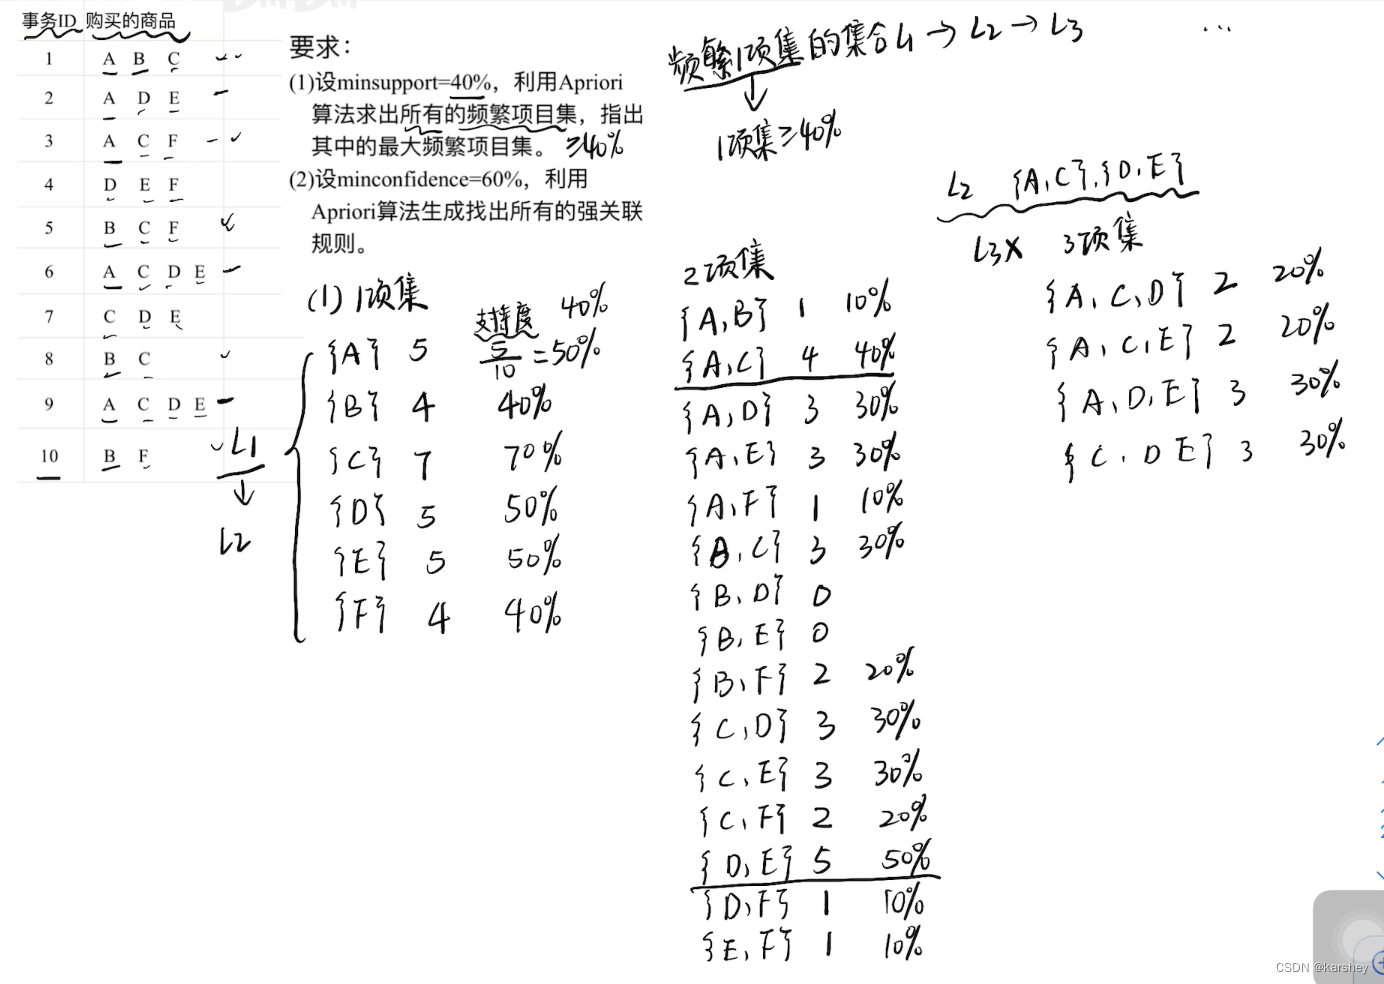 事务ID 购买的商品
1 A B C
2 A D E
3 A C F
4 D E F
5 B C F
6 A C D E
7 C D E
8 B C
9 A C D E
10 B F
要求：
(1)设minsupport=40%，利用Apriori
算法求出所有的频繁项目集，指出
其中的最大频繁项目集。 ≥40%
(2)设minconfidence=60%，利用
Apriori算法生成找出所有的强关联
规则。
频繁1项集的集合L1→L2→L3 …
1项集≥40%
L1
L2
(1) 1项集
支持度 40%
{A} 5 5/10=50%
{B} 4 40%
{C} 7 70%
{D} 5 50%
{E} 5 50%
{F} 4 40%
2项集
{A,B} 1 10%
{A,C} 4 40%
{A,D} 3 30%
{A,E} 3 30%
{A,F} 1 10%
{B,C} 3 30%
{B,D} 0
{B,E} 0
{B,F} 2 20%
{C,D} 3 30%
{C,E} 3 30%
{C,F} 2 20%
{D,E} 5 50%
{D,F} 1 10%
{E,F} 1 10%
L2 {A,C},{D,E}
L3× 3项集
{A,C,D} 2 20%
{A,C,E} 2 20%
{A,D,E} 3 30%
{C,D E} 3 30%
CSDN @karshey